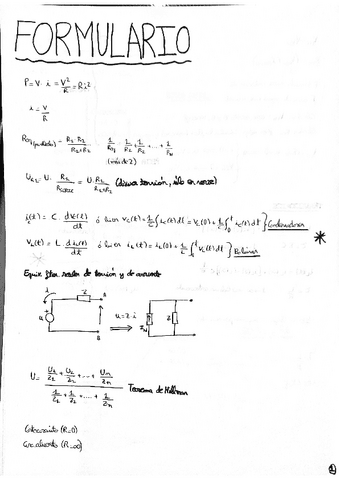 FORMULARIO
P = V · i = V²/R = R i²
i = V/R
Req (paralelo) = R1 · R2 / R1 + R2 1/Req = 1/R1 + 1/R2 + ... + 1/RN
(más de 2)
U · R2 / = U · R2 / R1 + R2 (divisor tensión, sólo en serie)
ic(t) = C · dVc(t)/dt ó bien Vc(t) = 1/C ∫ ic(t) dt = Vc(0) + 1/C ∫0^t ic(t) dt } Condensadores
VL(t) = L · d iL(t)/dt ó bien iL(t) = iL(0) + 1/L ∫0^t VL(t) dt } Bobinas
*
de tensión y de corriente
i Z A
u u = Z · i Z
B
U = U1/Z1 + U2/Z2 + ... + Un/Zn / 1/Z1 + 1/Z2 + .... + 1/Zn Teorema de Millman
Cortocircuito (R=0)
Circ. abierto (R=∞)
1